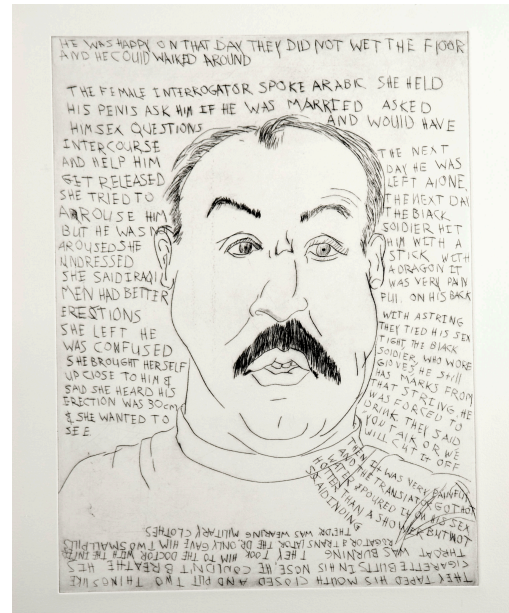 HE WAS HAPPY ON THAT DAY THEY DID NOT WET THE FLOOR
AND HE COULD WALKED AROUND
THE FEMALE INTERROGATOR SPOKE ARABIC SHE HELD
HIS PENIS ASK HIM IF HE WAS MARRIED ASKED
HIM SEX QUESTIONS AND WOULD HAVE
INTERCOURSE
AND HELP HIM
GET RELEASED
SHE TRIED TO
ARROUSE HIM
BUT HE WAS
AROUSED SHE
UNDRESSED
SHE SAID IRAQI
MEN HAD BETTER
ERECTIONS
SHE LEFT HE
WAS CONFUSED
SHE BROUGHT HERSELF
UP CLOSE TO HIM &
SAID SHE HEARD HIS
ERECTION WAS 30cm
& SHE WANTED TO
SEE
THE NEXT
DAY HE WAS
LEFT ALONE.
THE NEXT DAY
THE BLACK
SOLDIER HIT
HIM WITH A
STICK WITH
A DRAGON IT
WAS VERY PAIN
FUL. ON HIS BACK
WITH A STRING
THEY TIED HIS SEX
TIGHT THE BLACK
SOLDIER, WHO WORE
GLOVES HE STILL
HAS MARKS FROM
THAT STRING. HE
WAS FORCED TO
DRINK THEY SAID
YOU TALK OR WE
WILL CUT IT OFF
THEN IT WAS VERY PAINFUL
AND THE TRANSLATOR GOT HOT
WATER & POURED IT ON HIS SEX
HOTTER THAN A SHOWER BUT NOT
SCALDING
THEY TAPED HIS MOUTH CLOSED AND PUT TWO THINGS LIKE
CIGARETTE BUTTS IN HIS NOSE, HE COULDN'T BREATHE HES
THROAT WAS BURNING THEY TOOK HIM TO THE DOCTOR WITH THE INTER
ROGATOR & TRANSLATOR THE DR. ONLY GAVE HIM TWO SMALL PILLS
THE DR. WAS WEARING MILITARY CLOTHES